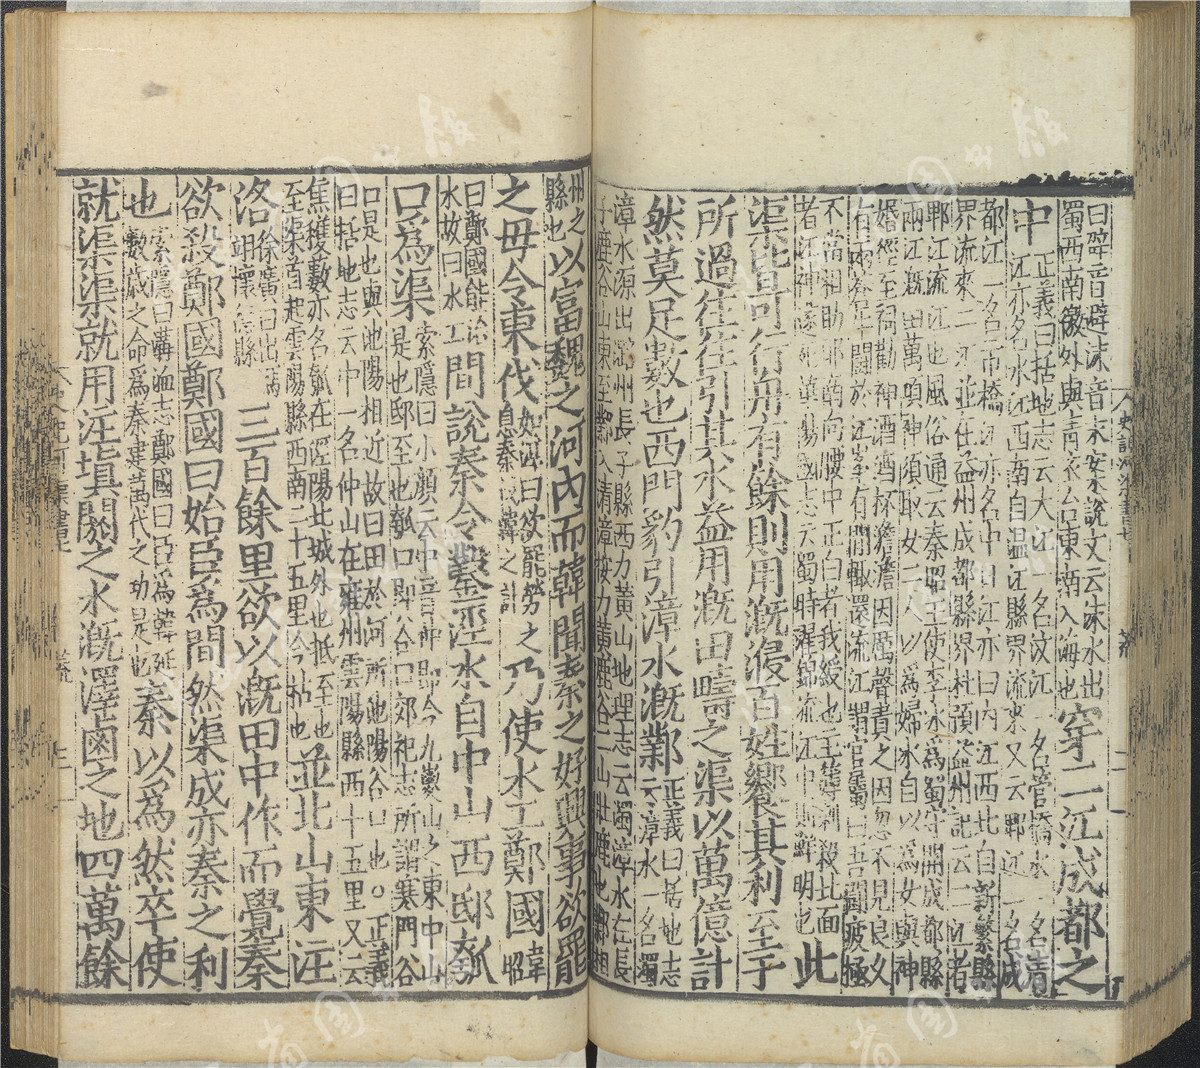 曰辟音避沫音末案說文云沫水出蜀西南徼外與青衣合東南入海也穿二江成都之
中正義曰括地志云大江一名汶江一名管橋水一名清江亦名水江西南自温江縣界流來又云郫江一名成
都江一名市橋江亦名中日江亦曰内江西北自新繁縣界流來二江並在益州成都縣界杜預益州記云二江者
郫江流江也風俗通云秦昭王使李冰爲蜀守開成都縣兩江溉田萬頃神須取女二人以爲婦冰自以爲女與神
婚徑至祠勸神酒酒杯澹澹因厲聲責之因忽不見良久有兩蒼牛鬭於江岸有間輒還流江謂官屬曰吾鬭疲極
不當相助耶南向腰中正白者我綬也主簿刺殺北面者江神遂死華陽國志云蜀時濯錦流江中則鮮明也此
渠皆可行舟有餘則用溉浸百姓饗其利至于
所過往往引其水益用溉田疇之渠以萬億計
然莫足數也西門豹引漳水溉鄴正義曰括地志云漳水一名濁
漳水源出潞州長子縣西力黃山地理志云濁漳水在長子鹿谷山東至鄴入清漳按力黃鹿谷二山北鹿也鄴相
州之縣也以富魏之河内而韓聞秦之好興事欲罷
之毋令東伐如淳曰欲罷勞之息秦伐韓之計乃使水工鄭國韋昭
曰鄭國能治水故曰水工間說秦令鑿涇水自中山西邸瓠
口爲渠索隱曰小顏云中音仲即今九嵕山之東中山是也邸至也瓠口即谷口郊祀志所謂寒門谷
口是也與池陽相近故曰田於何所池陽谷口也○正義曰括地志云中山一名仲山在雍州雲陽縣西十五里又云
焦穫藪亦名瓠在涇陽北城外也抵至也至渠首起雲陽縣西南二十五里今枯也並北山東注
洛徐廣曰出馮翊懷德縣三百餘里欲以溉田中作而覺秦
欲殺鄭國鄭國曰始臣爲間然渠成亦秦之利
也索隱曰溝洫志鄭國曰臣爲韓延數歲之命爲秦建萬代之功是也秦以爲然卒使
就渠渠就用注填閼之水溉澤鹵之地四萬餘